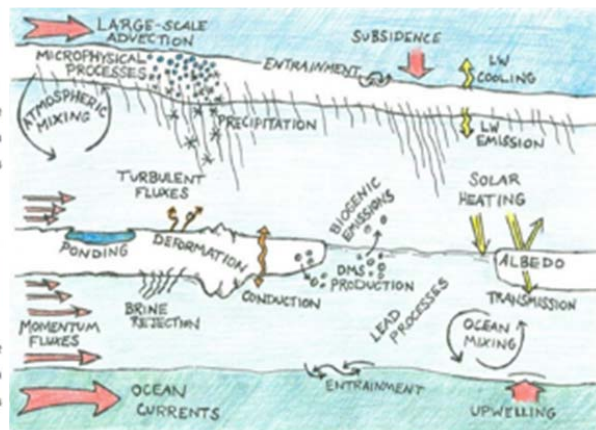 LARGE-SCALE
ADVECTION
SUBSIDENCE
MICROPHYSICAL
PROCESSES
ENTRAINMENT
LW
COOLING
ATMOSPHERIC
MIXING
PRECIPITATION
LW
EMISSION
TURBULENT
FLUXES
BIOGENIC
EMISSIONS
SOLAR
HEATING
PONDING
DEFORMATION
ALBEDO
DMS
PRODUCTION
CONDUCTION
TRANSMISSION
BRINE
REJECTION
LEAD PROCESSES
MOMENTUM
FLUXES
OCEAN
MIXING
ENTRAINMENT
OCEAN
CURRENTS
UPWELLING